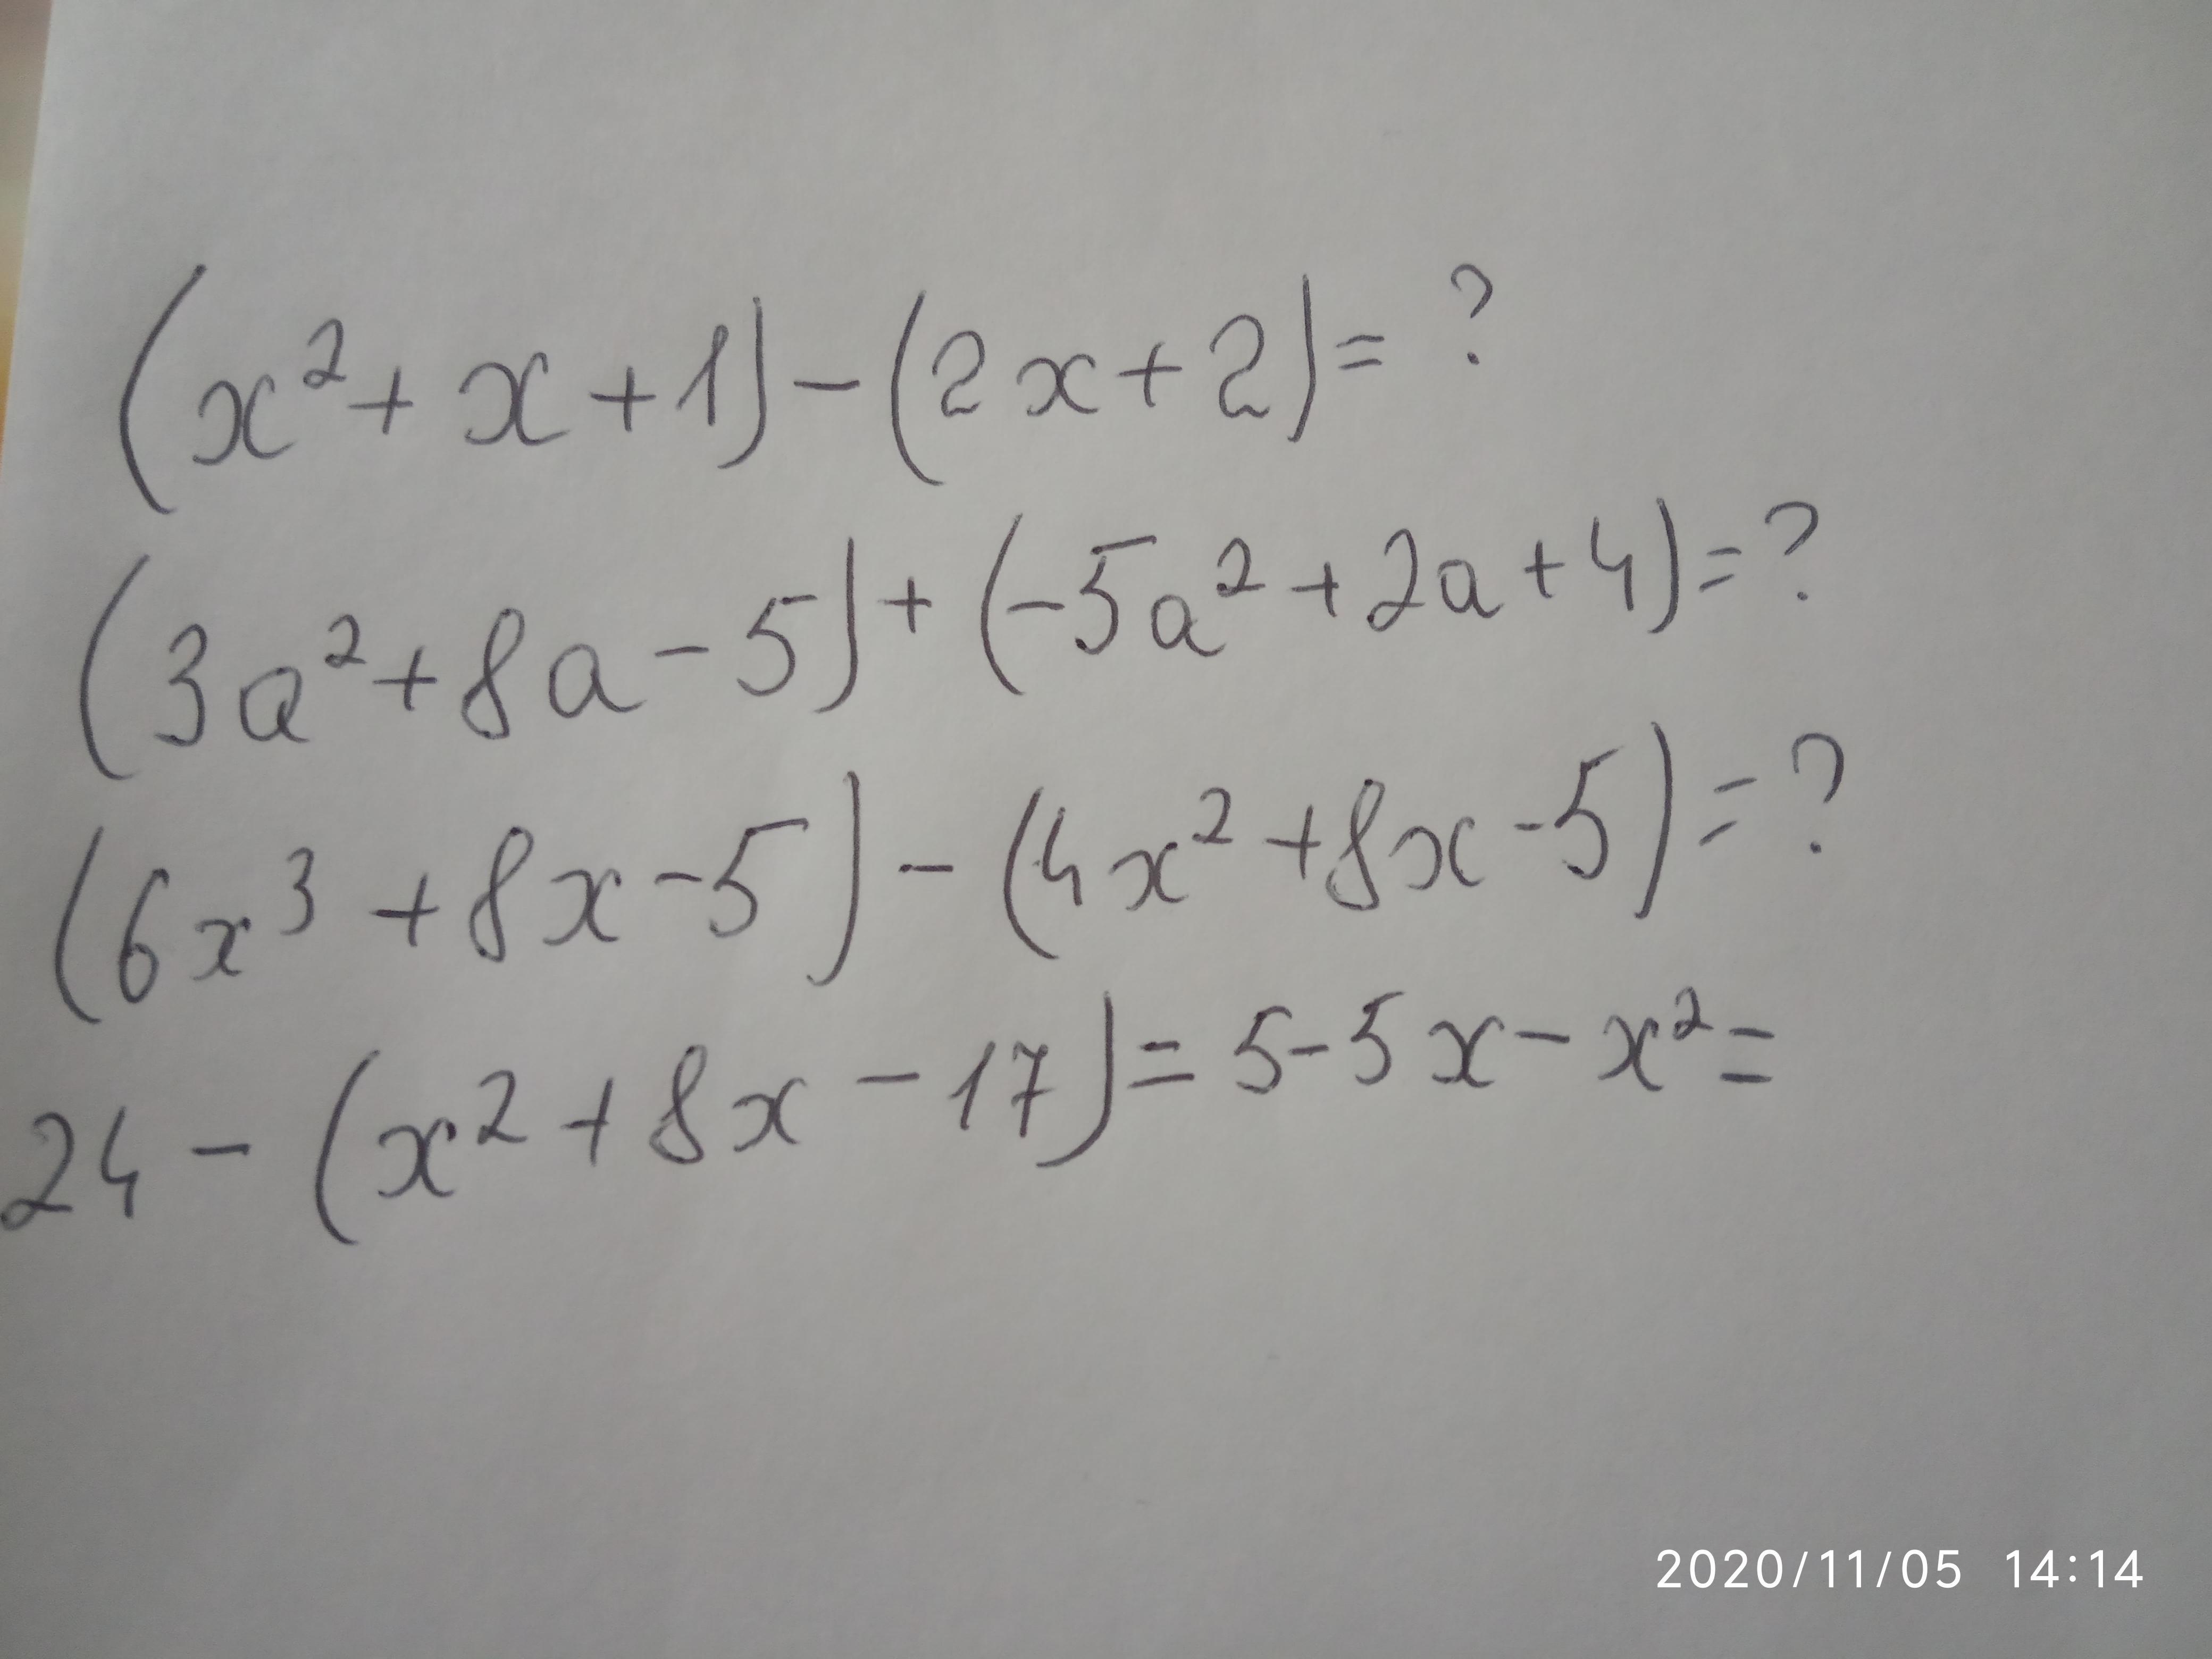 (x²+x+1)-(2x+2)=?
(3a²+8a-5)+(-5a²+2a+4)=?
(6x³+8x-5)-(4x²+8x-5)=?
24-(x²+8x-17)=5-5x-x²=
2020/11/05 14:14